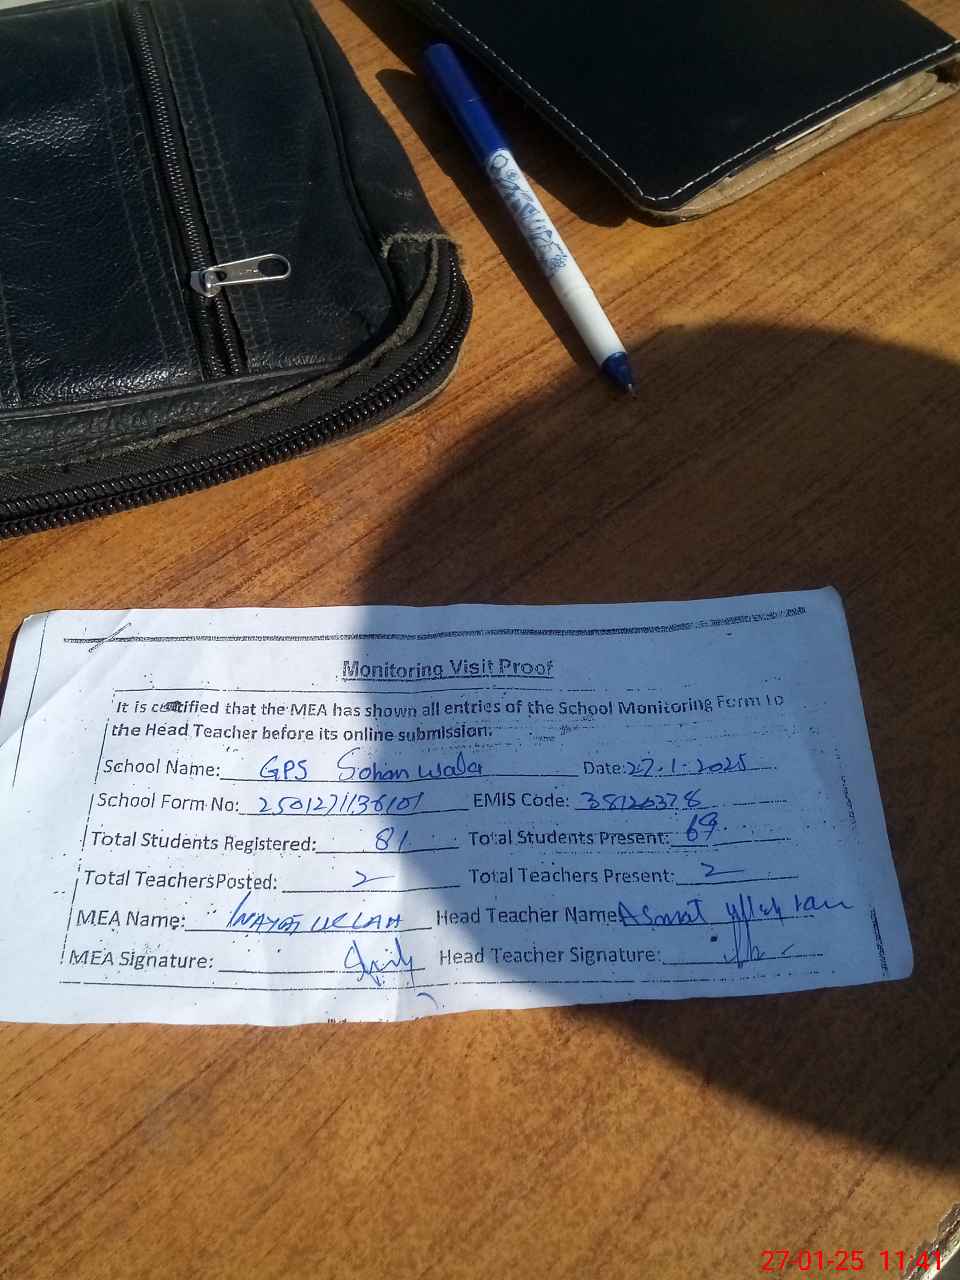 Monitoring Visit Proof
It is certified that the MEA has shown all entries of the School Monitoring Form to
the Head Teacher before its online submission.
School Name: GPS Sohan wala Date: 27-1-2025
School Form No: EMIS Code: 38120378
Total Students Registered: 81 Total Students Present: 69
Total TeachersPosted: 2 Total Teachers Present: 2
MEA Name: INAYAT ULLAH Head Teacher Name Asmat ullah
MEA Signature: Head Teacher Signature:
27-01-25 11:41